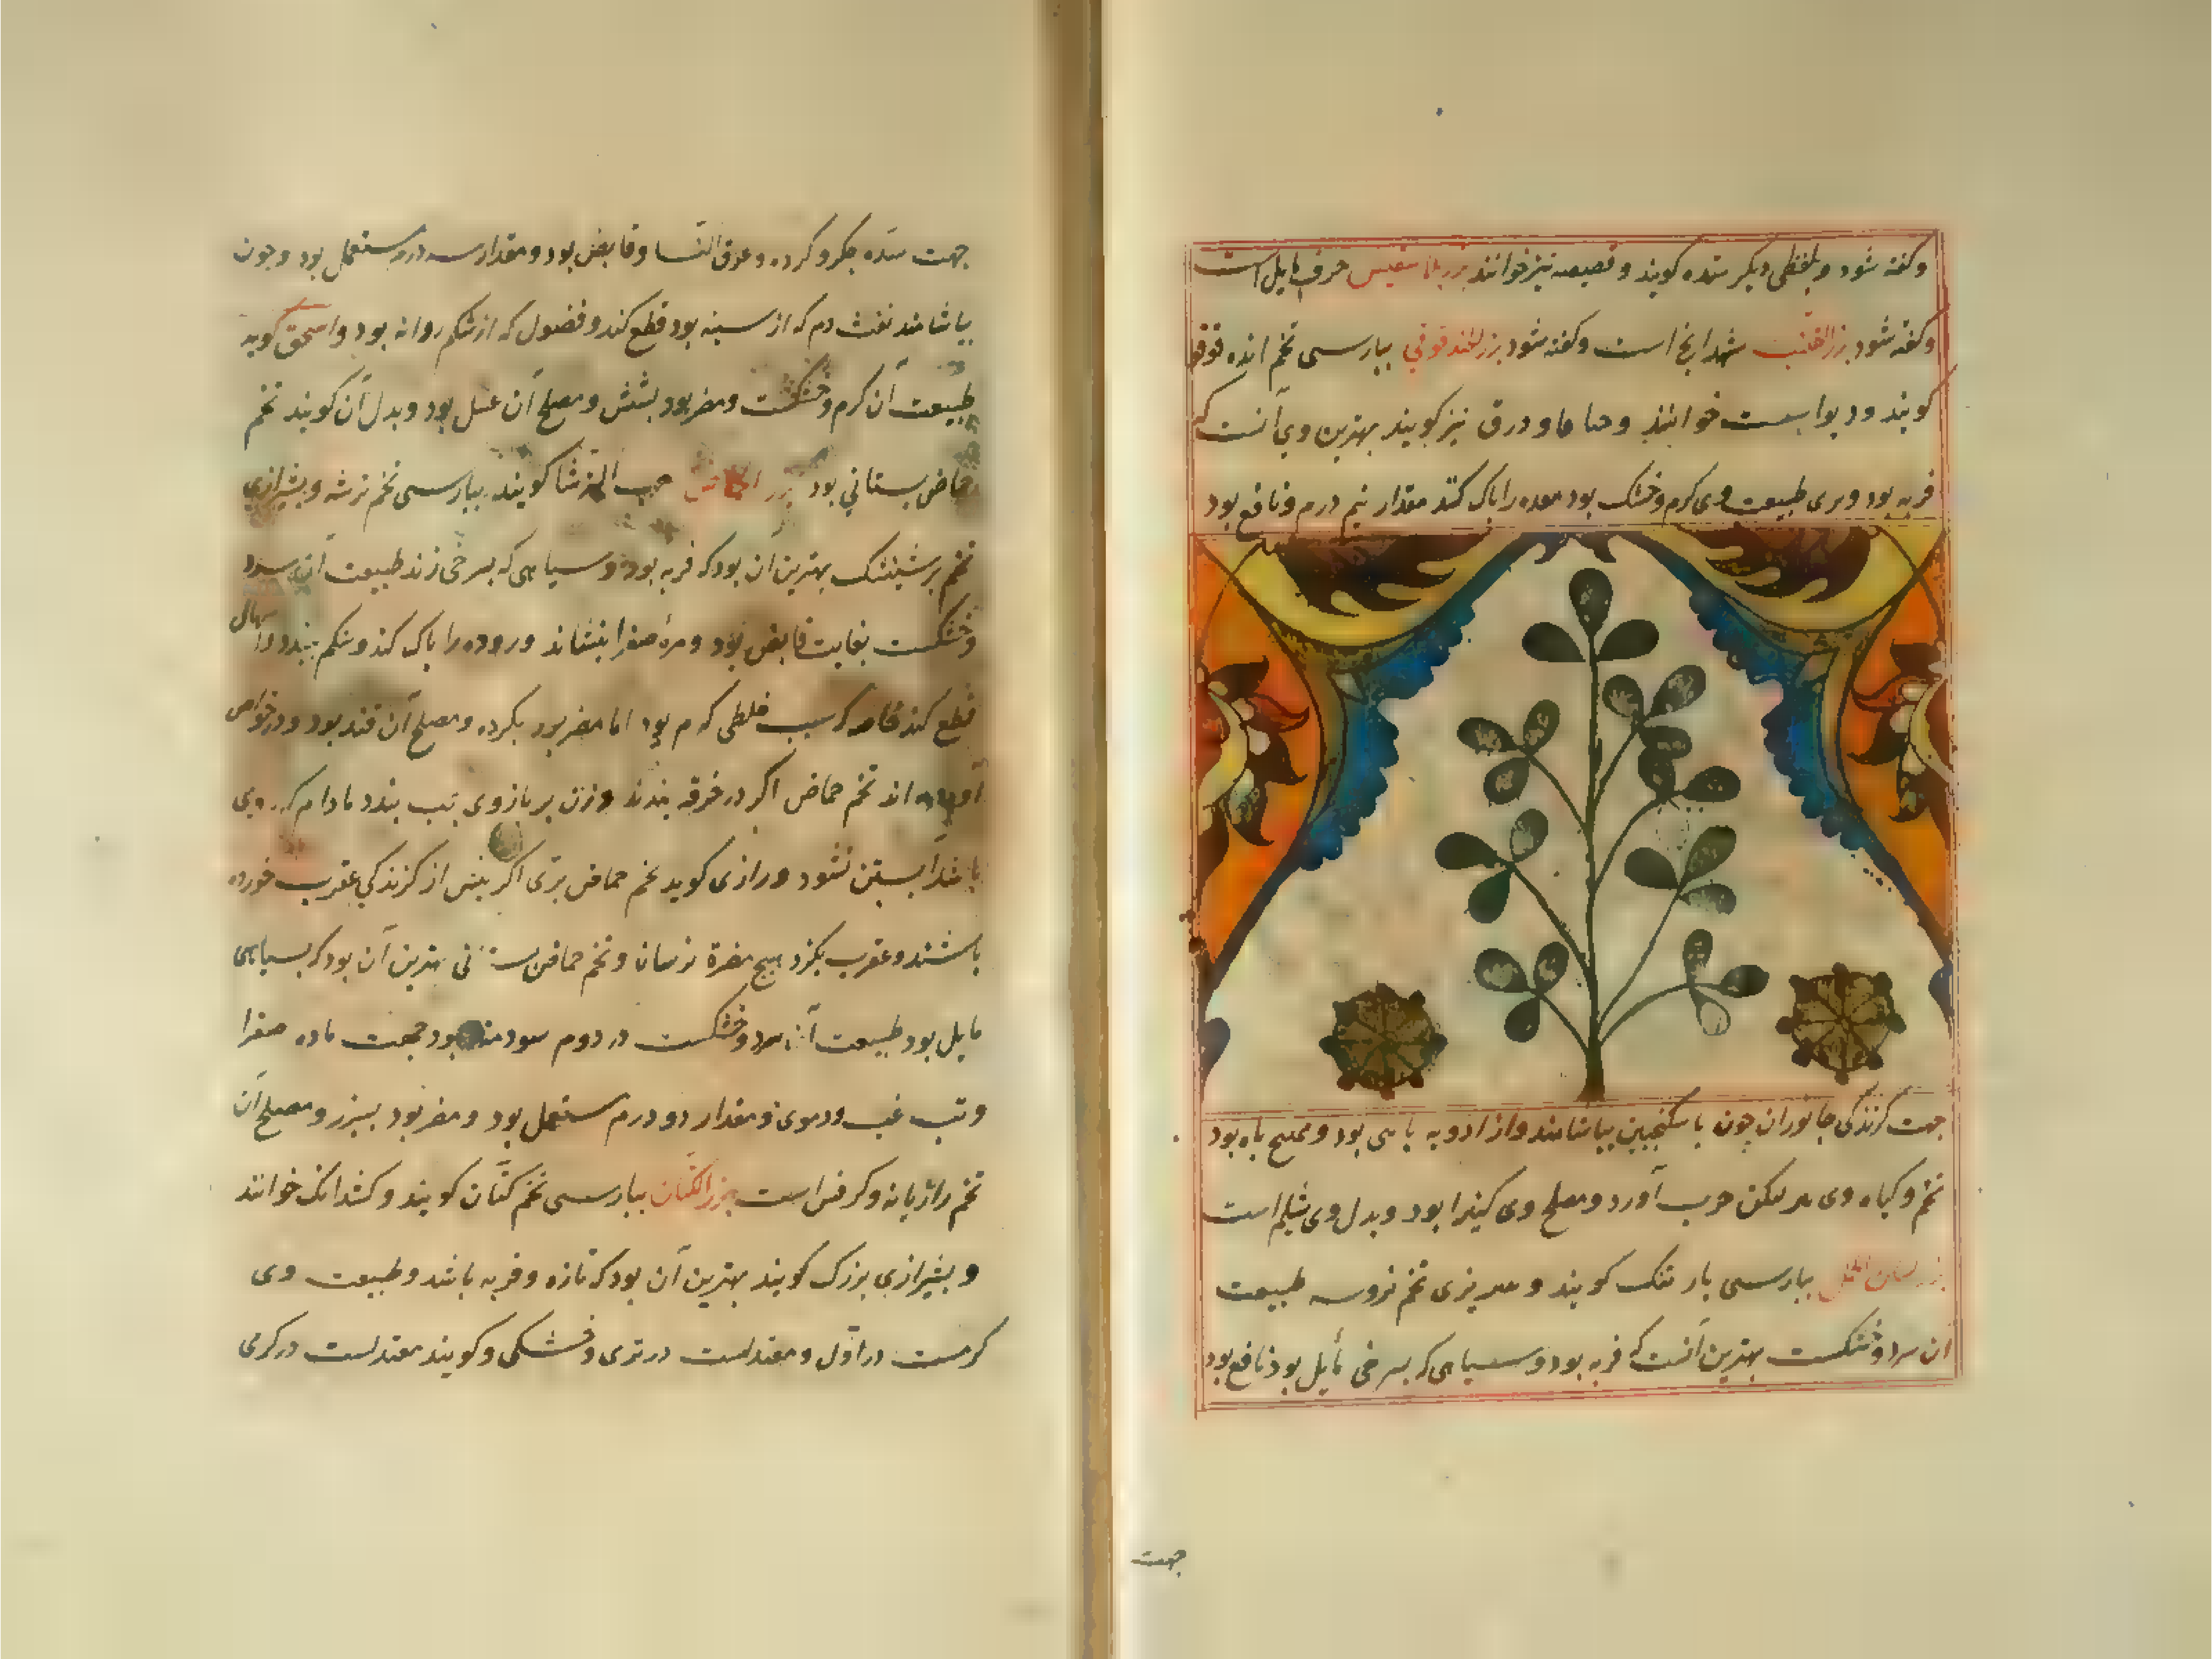 وکفته شود وبلفظی دیکر سنده کویند وقصیصه نیز خوانند بزر بلنا سفیس حرف بابل است
وکفته شود بزر القنب شهدانج است وکفته شود بزر الحندقوقی بپارسی تخم انده قوقو
کویند ودیوا سبت خوانند وحبا قا و ذرق نیز کویند بهترین وی آنست که
فربه بود وبری طبیعت وی کرم وخشک بود معده را پاک کند مقدار نیم درم ونافع بود
جهت کزندکی جانوران چون با سکنجبین بیاشامند واز ادویه باهی بود ومهیج باه بود
تخم وکیاه وی لیکن جرب آورد ومصلح وی کتیرا بود وبدل وی شلیم است
بزر لسان الحمل بپارسی بار تنک کویند و تخم طبیعت
ان سرد وخشکست بهترین آنست که فربه بود وسیاهی که بسرخی مایل بود نافع بود
جهت
جهت سده جکر وکرده وعرق النسا وقابض بود ومقدار سه درم مستعمل بود وچون
بیاشامند نفث دم که از سینه بود قطع کند وفضول که از شکم روانه بود واسحق کوید
طبیعت آن کرم وخشکست ومضر بود بشش ومصلح آن عسل بود وبدل آن کویند تخم
حماض بستانی بود بزر الحماض حب الرشا کویند بپارسی تخم ترشه وبشیرازی
تخم ترشینک بهترین آن بود که فربه بود وسیاهی که بسرخی زند طبیعت آن سرد
وخشکست بغایت قابض بود ومرة صفرا بنشاند وروده را پاک کند وشکم ببندد واسهال
قطع کند خاصه که سبب خلطی کرم بود اما مضر بود بکرده ومصلح آن قند بود ودر خواص
آورده اند تخم حماض اکر در خرقه بندند وزن بر بازوی چپ بندد مادام که بر وی
باشد آبستن نشود ورازی کوید تخم حماض بری اکر پیش از کزندکی عقرب خورده
باشند وعقرب بکزد هیچ مضرة نرساند وتخم حماض بستانی بهترین آن بود که بسیاهی
مایل بود طبیعت آن سرد وخشکست در دوم سودمند بود جهت ماده صفرا
وتب غب ودموی ومقدار دو درم مستعمل بود ومضر بود بسپرز ومصلح آن
تخم رازیانه وکرفس است بزر الکتان بپارسی تخم کتان کویند وکشدانک خوانند
وبشیرازی بزرک کویند بهترین آن بود که تازه وفربه باشد وطبیعت وی
کرمست در اول ومعتدلست در تری وخشکی وکویند معتدلست در کرمی